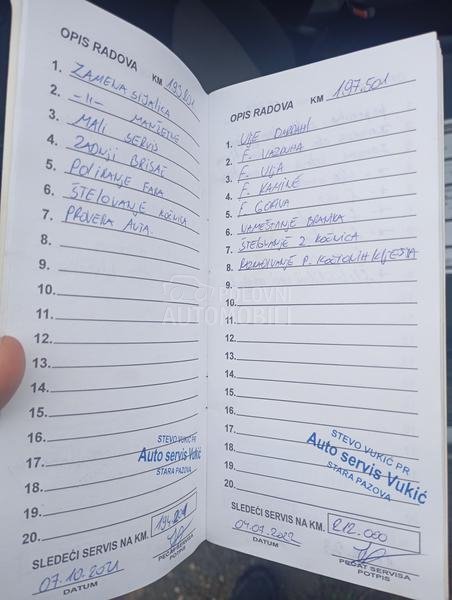 OPIS RADOVA KM
1. ZAMENA SIJALICA
2. -II- MANŽETNE
3. MALI SERVIS
4. ZADNJI BRISAČ
5. POLIRANJE FARA
6. ŠTELOVANJE KOČNICA
7. PROVERA AUTA
8.
9.
10.
11.
12.
13.
14.
15.
16.
17.
18.
19.
20.
STEVO VUKIĆ PR
Auto servis Vukić
STARA PAZOVA
SLEDEĆI SERVIS NA KM.
07.10.2021
DATUM
PEČAT SERVISA
POTPIS
OPIS RADOVA KM 197.501
1. ULJE
2. F. VAZDUHA
3. F. ULJA
4. F. KABINE
5. F. GORIVA
6. NAMEŠTANJE BRANIKA
7. ŠTELOVANJE Z KOČNICA
8. P. KOČIONIH KLJEŠTA
9.
10.
11.
12.
13.
14.
15.
16.
17.
18.
19.
20.
STEVO VUKIĆ PR
Auto servis Vukić
STARA PAZOVA
SLEDEĆI SERVIS NA KM. 212.000
04.07.2022
DATUM
PEČAT SERVISA
POTPIS
POLOVNI
AUTOMOBILI